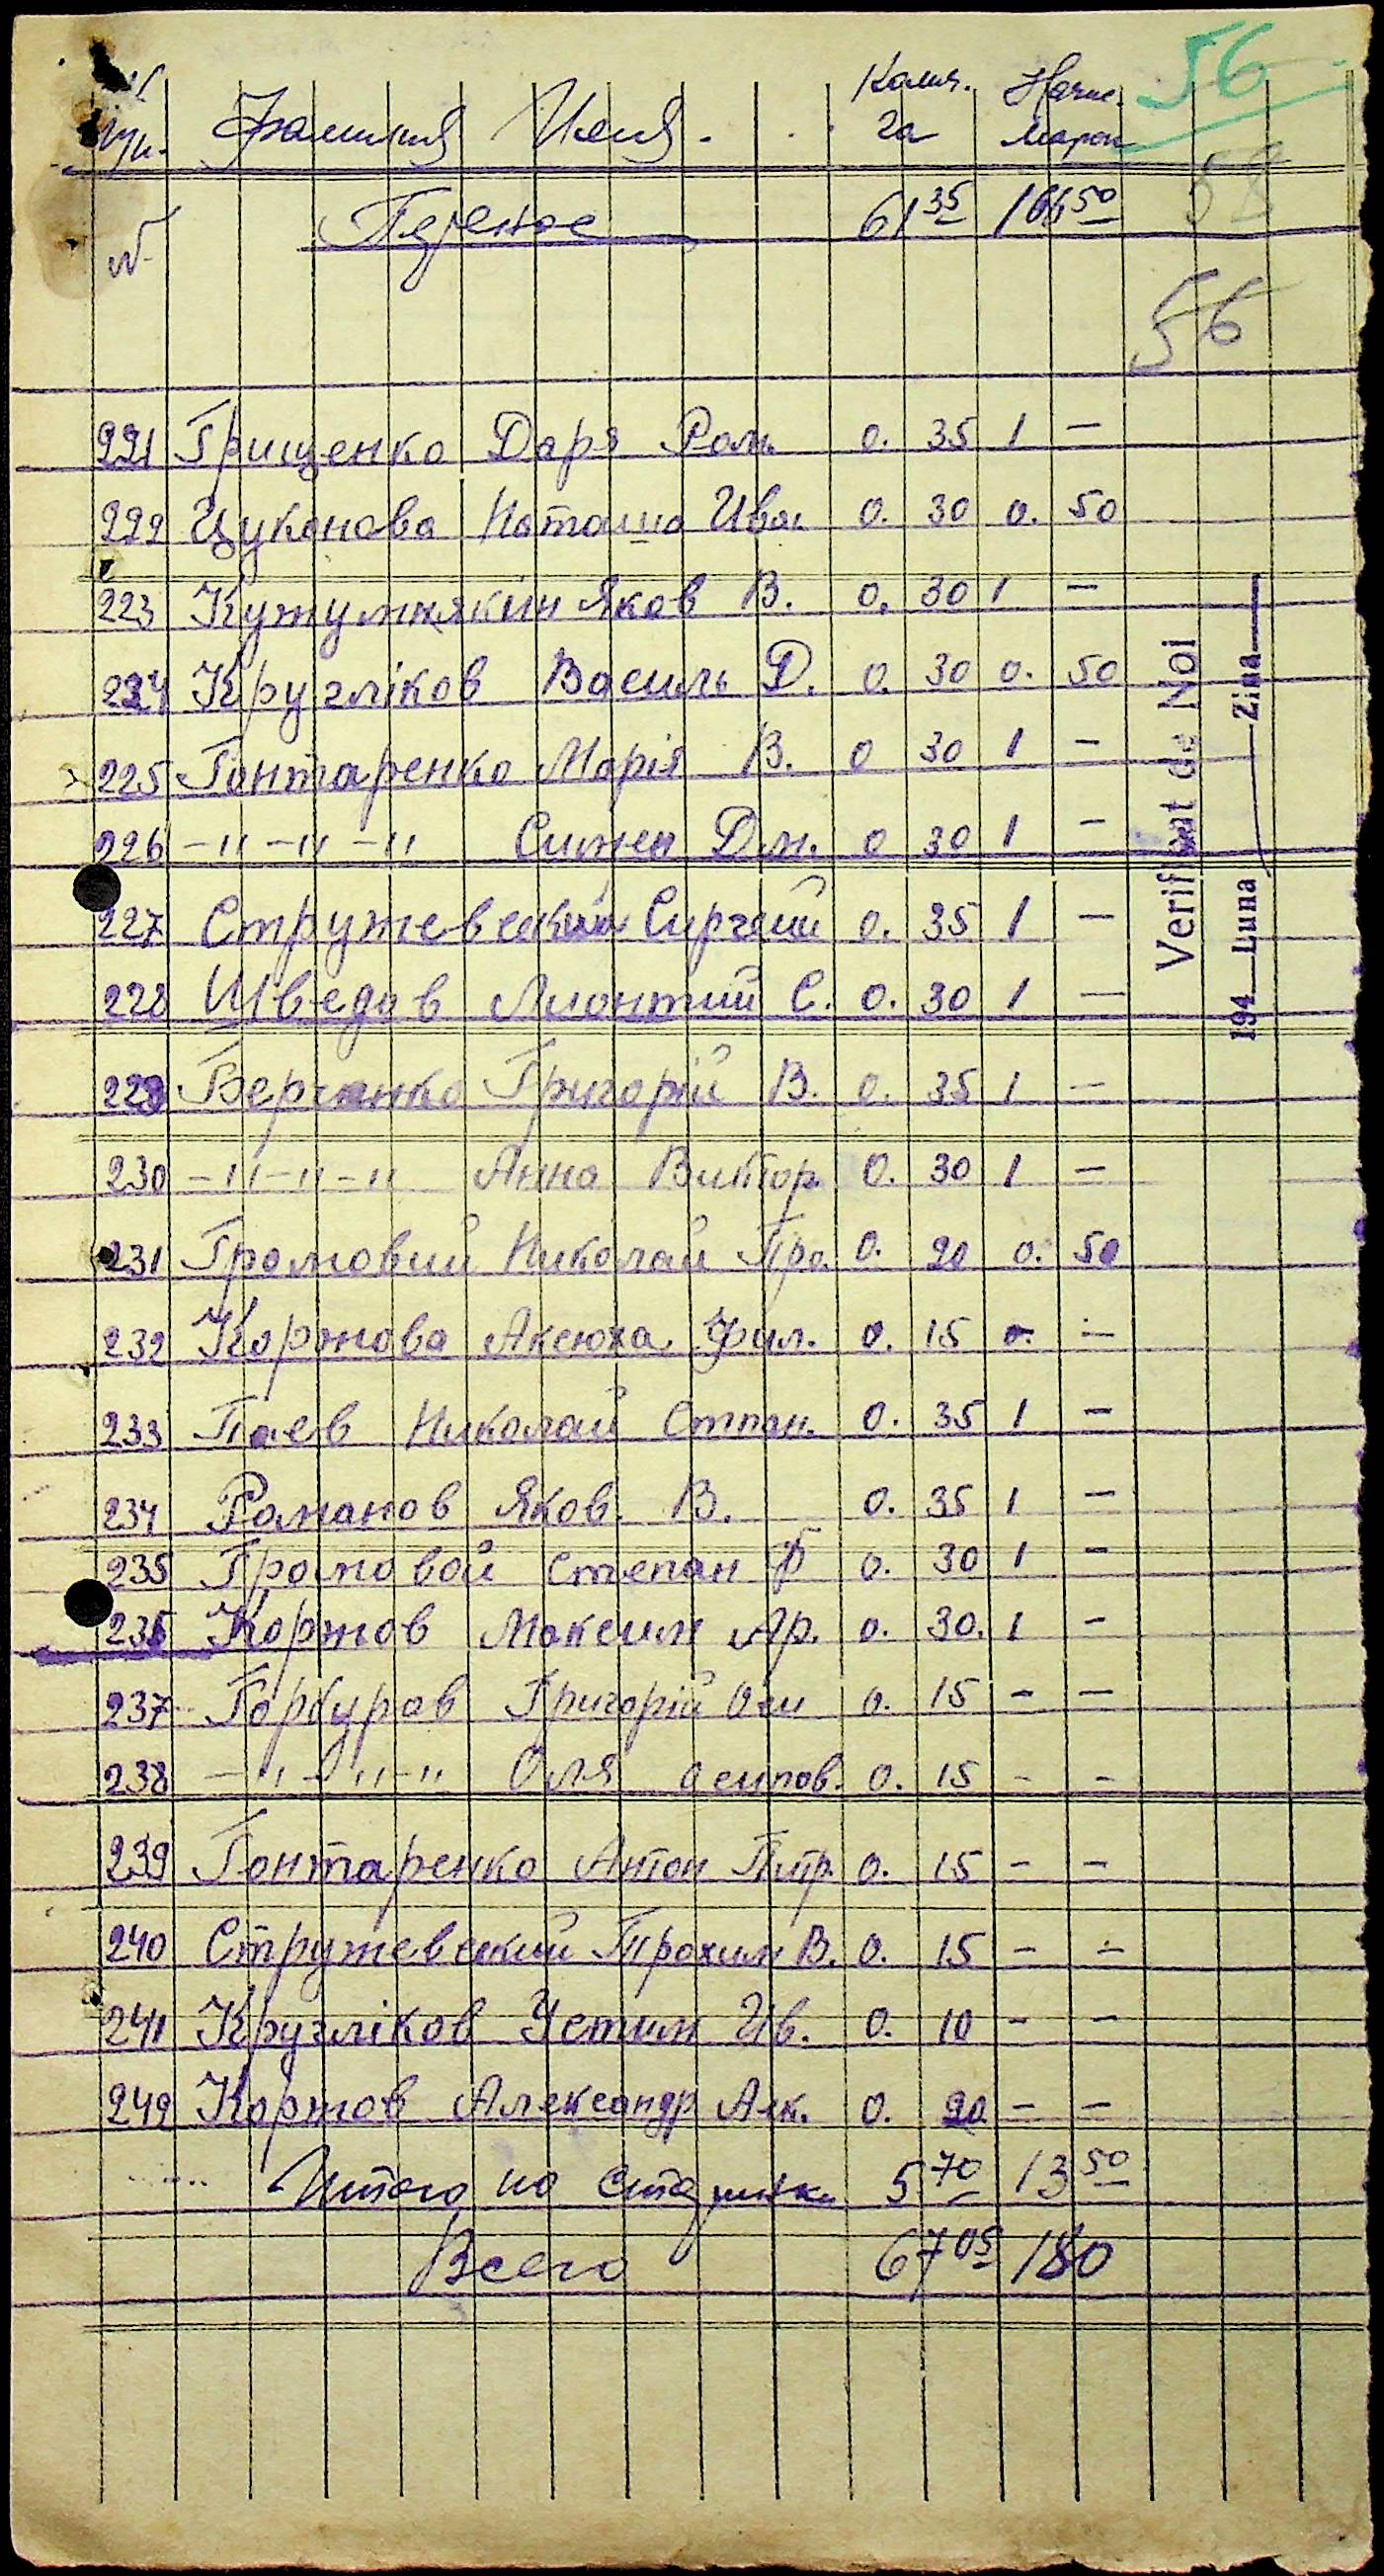 56
№ Фамилия Имя. Колич. Начис.
п/п. га марок
Перенос 61 35 166 50
58
56
221 Грищенко Даря Ром. 0. 35 1 —
222 Цуканова Наташа Ива. 0. 30 0. 50
223 Яков В. 0. 30 1 —
224 Кругліков Василь Д. 0. 30 0. 50
225 Гонтаренко Марія В. 0 30 1 —
226 —"—"—" Симен Дм. 0 30 1 —
227 Стружевский Сиргей 0. 35 1 —
228 Шведов Лионтий С. 0. 30 1 —
229 Григорій В. 0. 35 1 —
230 —"—"—" Анна Виктор. 0. 30 1 —
231 Громовий Николай Про. 0. 20 0. 50
232 Коржова Аксюха Фил. 0. 15 0. —
233 Паев Николай Степан. 0. 35 1 —
234 Романов Яков. В. 0. 35 1 —
235 Громовой Степан 0. 30 1 —
236 Коржов Максим Ар. 0. 30. 1 —
237 Горбуров Григорій Оси 0. 15 — —
238 —"—"—" Оля Осипов. 0. 15 — —
239 Гонтаренко Антон Питр. 0. 15 — —
240 Стружевский Трохим В. 0. 15 — —
241 Кругліков Устим Ив. 0. 10 — —
242 Коржов Александр Алк. 0. 20 — —
Итого по странике 5 70 13 50
Всего 67 05 180
Verificat de Noi
194 Luna Zina